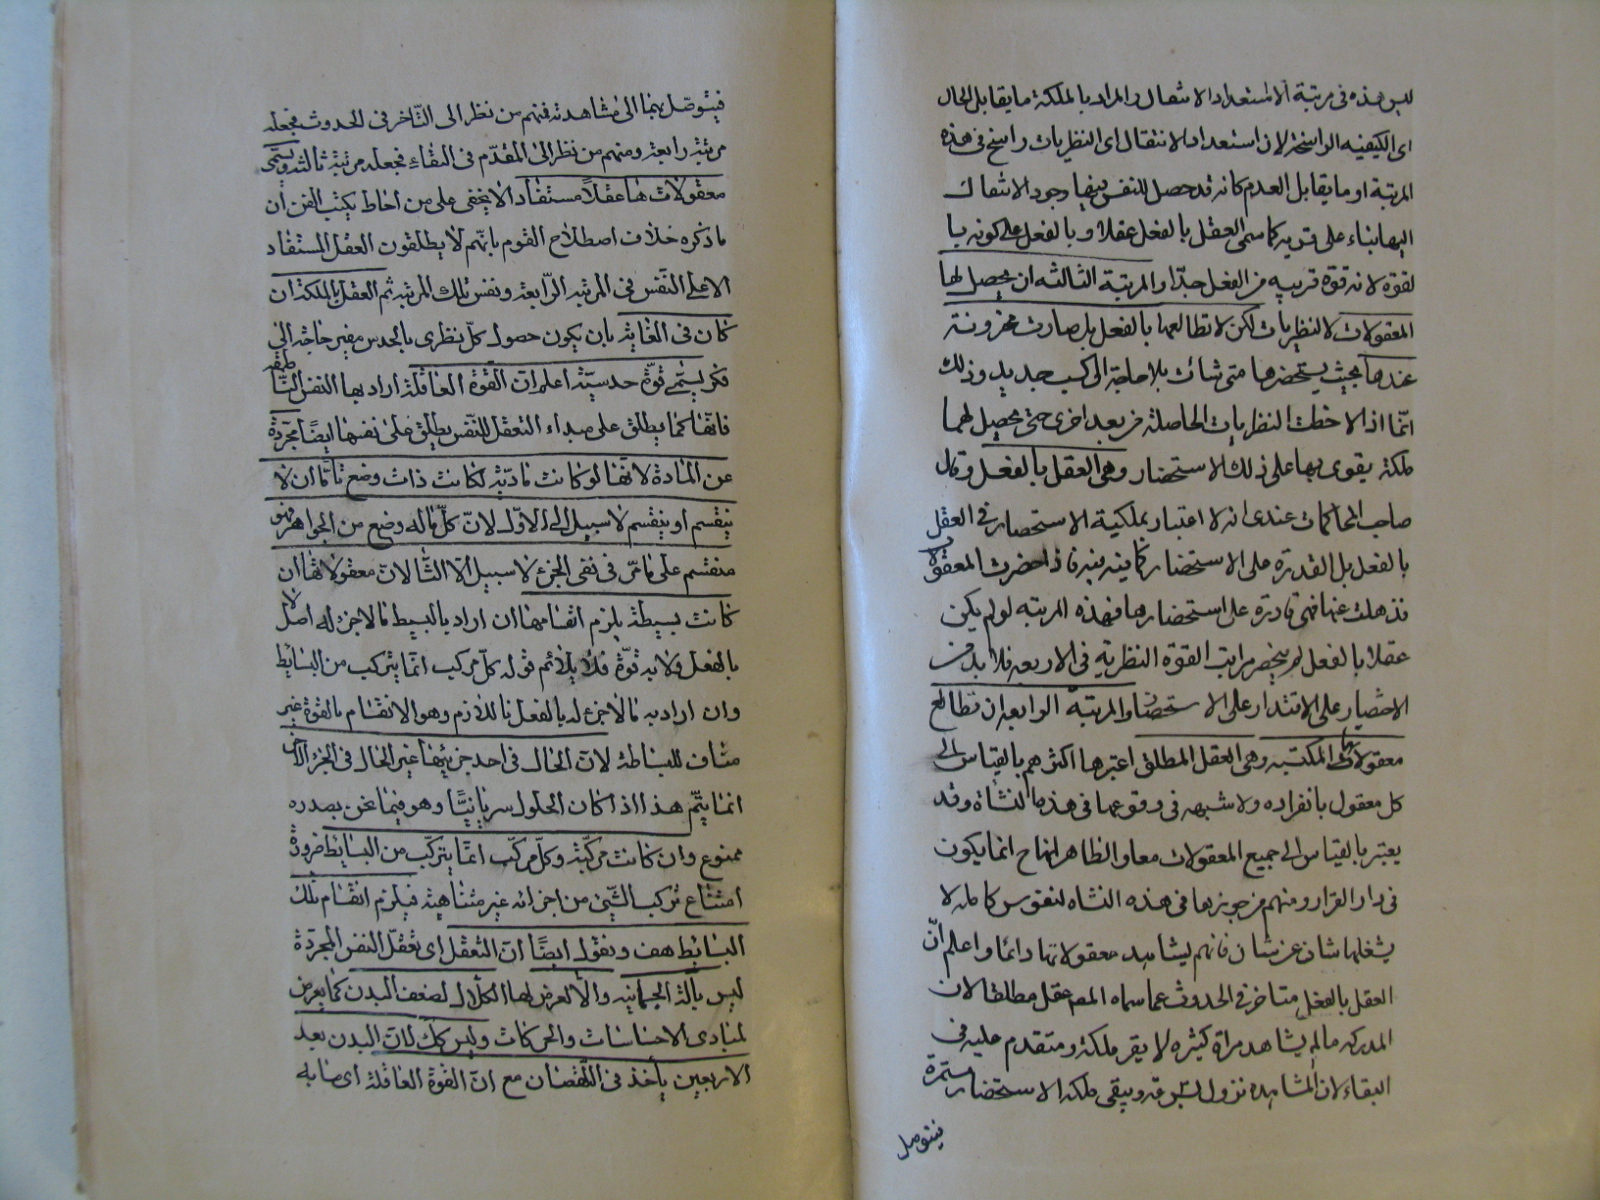 ليس هذه فى مرتبة الاستعداد الانتقال والمراد بالملكة ما يقابل الحال
اى الكيفيه الراسخة لان استعداد الانتقال اى النظريات راسخ فى هذه
المرتبة او ما يقابل العدم كانه قد حصل للنفس فيها وجود الانتقال
اليها بناء على قربه كما سمى العقل بالفعل عقلا وبالفعل على كونه با
لقوة لانه قوة قريبه من الفعل جدّا والمرتبة الثالثه ان يحصل لها
المعقولات النظريات لكن لا تطالعها بالفعل بل صارت مخزونة
عندها بحيث يستحضرها متى شائت بلا حاجة الى كسب جديد وذلك
انّما اذا لاحظت النظريات الحاصلة مرة بعد اخرى حتى يحصل لها
ملكة يقوى بها على ذلك الاستحضار وهى العقل بالفعل وقال
صاحب المحاكمات عندى انه لا اعتبار بملكية الاستحضار فى العقل
بالفعل بل القدرة على الاستحضار كافيه فيه فاذا حضرت المعقولات
فذهلت عنها فهى قادرة على استحضارها فهذه المرتبه لو لم يكن
عقلا بالفعل لم ينحصر مراتب القوة النظرية فى الاربعه فلا بد من
الاختصار على الاقتدار على الاستحضار والمرتبة الرابعه ان تطالع
معقولاتها المكتسبه وهى العقل المطلق اعتبرها اكثرهم بالقياس الى
كل معقول بانفراده ولا شبهه فى وقوعها فى هذه النشاة وقد
يعتبر بالقياس الى جميع المعقولات معا والظاهر انها ح انما يكون
فى دار القرار ومنهم من جوزها فى هذه النشاه لنفوس كامله لا
يشغلها شان عن شان فانهم يشاهد معقولاتها دائما واعلم انّ
العقل بالفعل متاخر فى الحدوث عما سماه المصـ عقل مطلقا لان
المدركه مالم يشاهد مراة كثيره لا يقر ملكة ومتقدم عليه فى
البقاء لان المشاهده تزول بسرعة ويبقى ملكه الاستحضار مستمرة
فيتوصل
فيتوصّل بها الى مشاهدته فمنهم من نظر الى التّاخر فى الحدوث فجعله
مرتبة رابعة ومنهم من نظر الى المقدّم فى البقاء فجعله مرتبة ثالثة ويسمّى
معقولات ها عقلاً مستفاد الا يخفى على من احاط بكتب الفن ان
ما ذكره خلاف اصطلاح القوم بانّهم لا يطلقون العقل المستفاد
الا على النّفس فى المرتبه الرّابعة ونفس تلك المرتبه ثم العقل بالملكة ان
كان فى الغاية بان يكون حصول كلّ نظرى بالحدس من غير حاجة الى
فكر يسمّى قوّة حدسيّة اعلم انّ القوة العاقلة اراد بها النفس النّاطقه
فانّها كما يطلق على مبداء التعقل للنّفس يطلق على نفسها ايضًا مجرّدة
عن المادة لانّها لو كانت مادّيّة لكانت ذات وضع فامّا ان لا
ينقسم او ينقسم لا سبيل الى الاوّل لانّ كلّ ماله وضع من الجواهر فهو
منقسم على مامرّ فى نفى الجزء لا سبيل الى الثّانى لانّ معقولاتها ان
كانت بسيطة يلزم انقسامها ان اراد بالبسيط مالا جزء له اصلا
بالفعل ولا به قوّة فلا يلائم قوله كلّ مركب انّما يتركب من البسائط
وان اراد به مالا جزء له بالفعل فاللّازم وهو الانقسام بالقوة غير
مناف للبساطة لانّ الحال فى احد جزئيها غير الحال فى الجزء الاخر
انما يتّم هذا اذا كان الحلول سريانيّا وهو فيما نحن بصدده
ممنوع وان كانت مركّبة وكلّ مركّب انّما يتركّب من البسائط ضرورة
امتناع تركب الشّىء من اجزائه غير متناهية فيلزم انقسام تلك
البسائط هف ونقول ايضًا انّ التعقل اى تعقّل النفس المجرّدة
ليس بالة الجسمانيه والّا لعرض لها الكلال لضعف البدن كما يعرض
لمبادى الاحساسات والحركات وليس كك لانّ البدن بعد
الاربعين ياخذ فى النّقصان مع انّ القوة العاقلة اى ما به